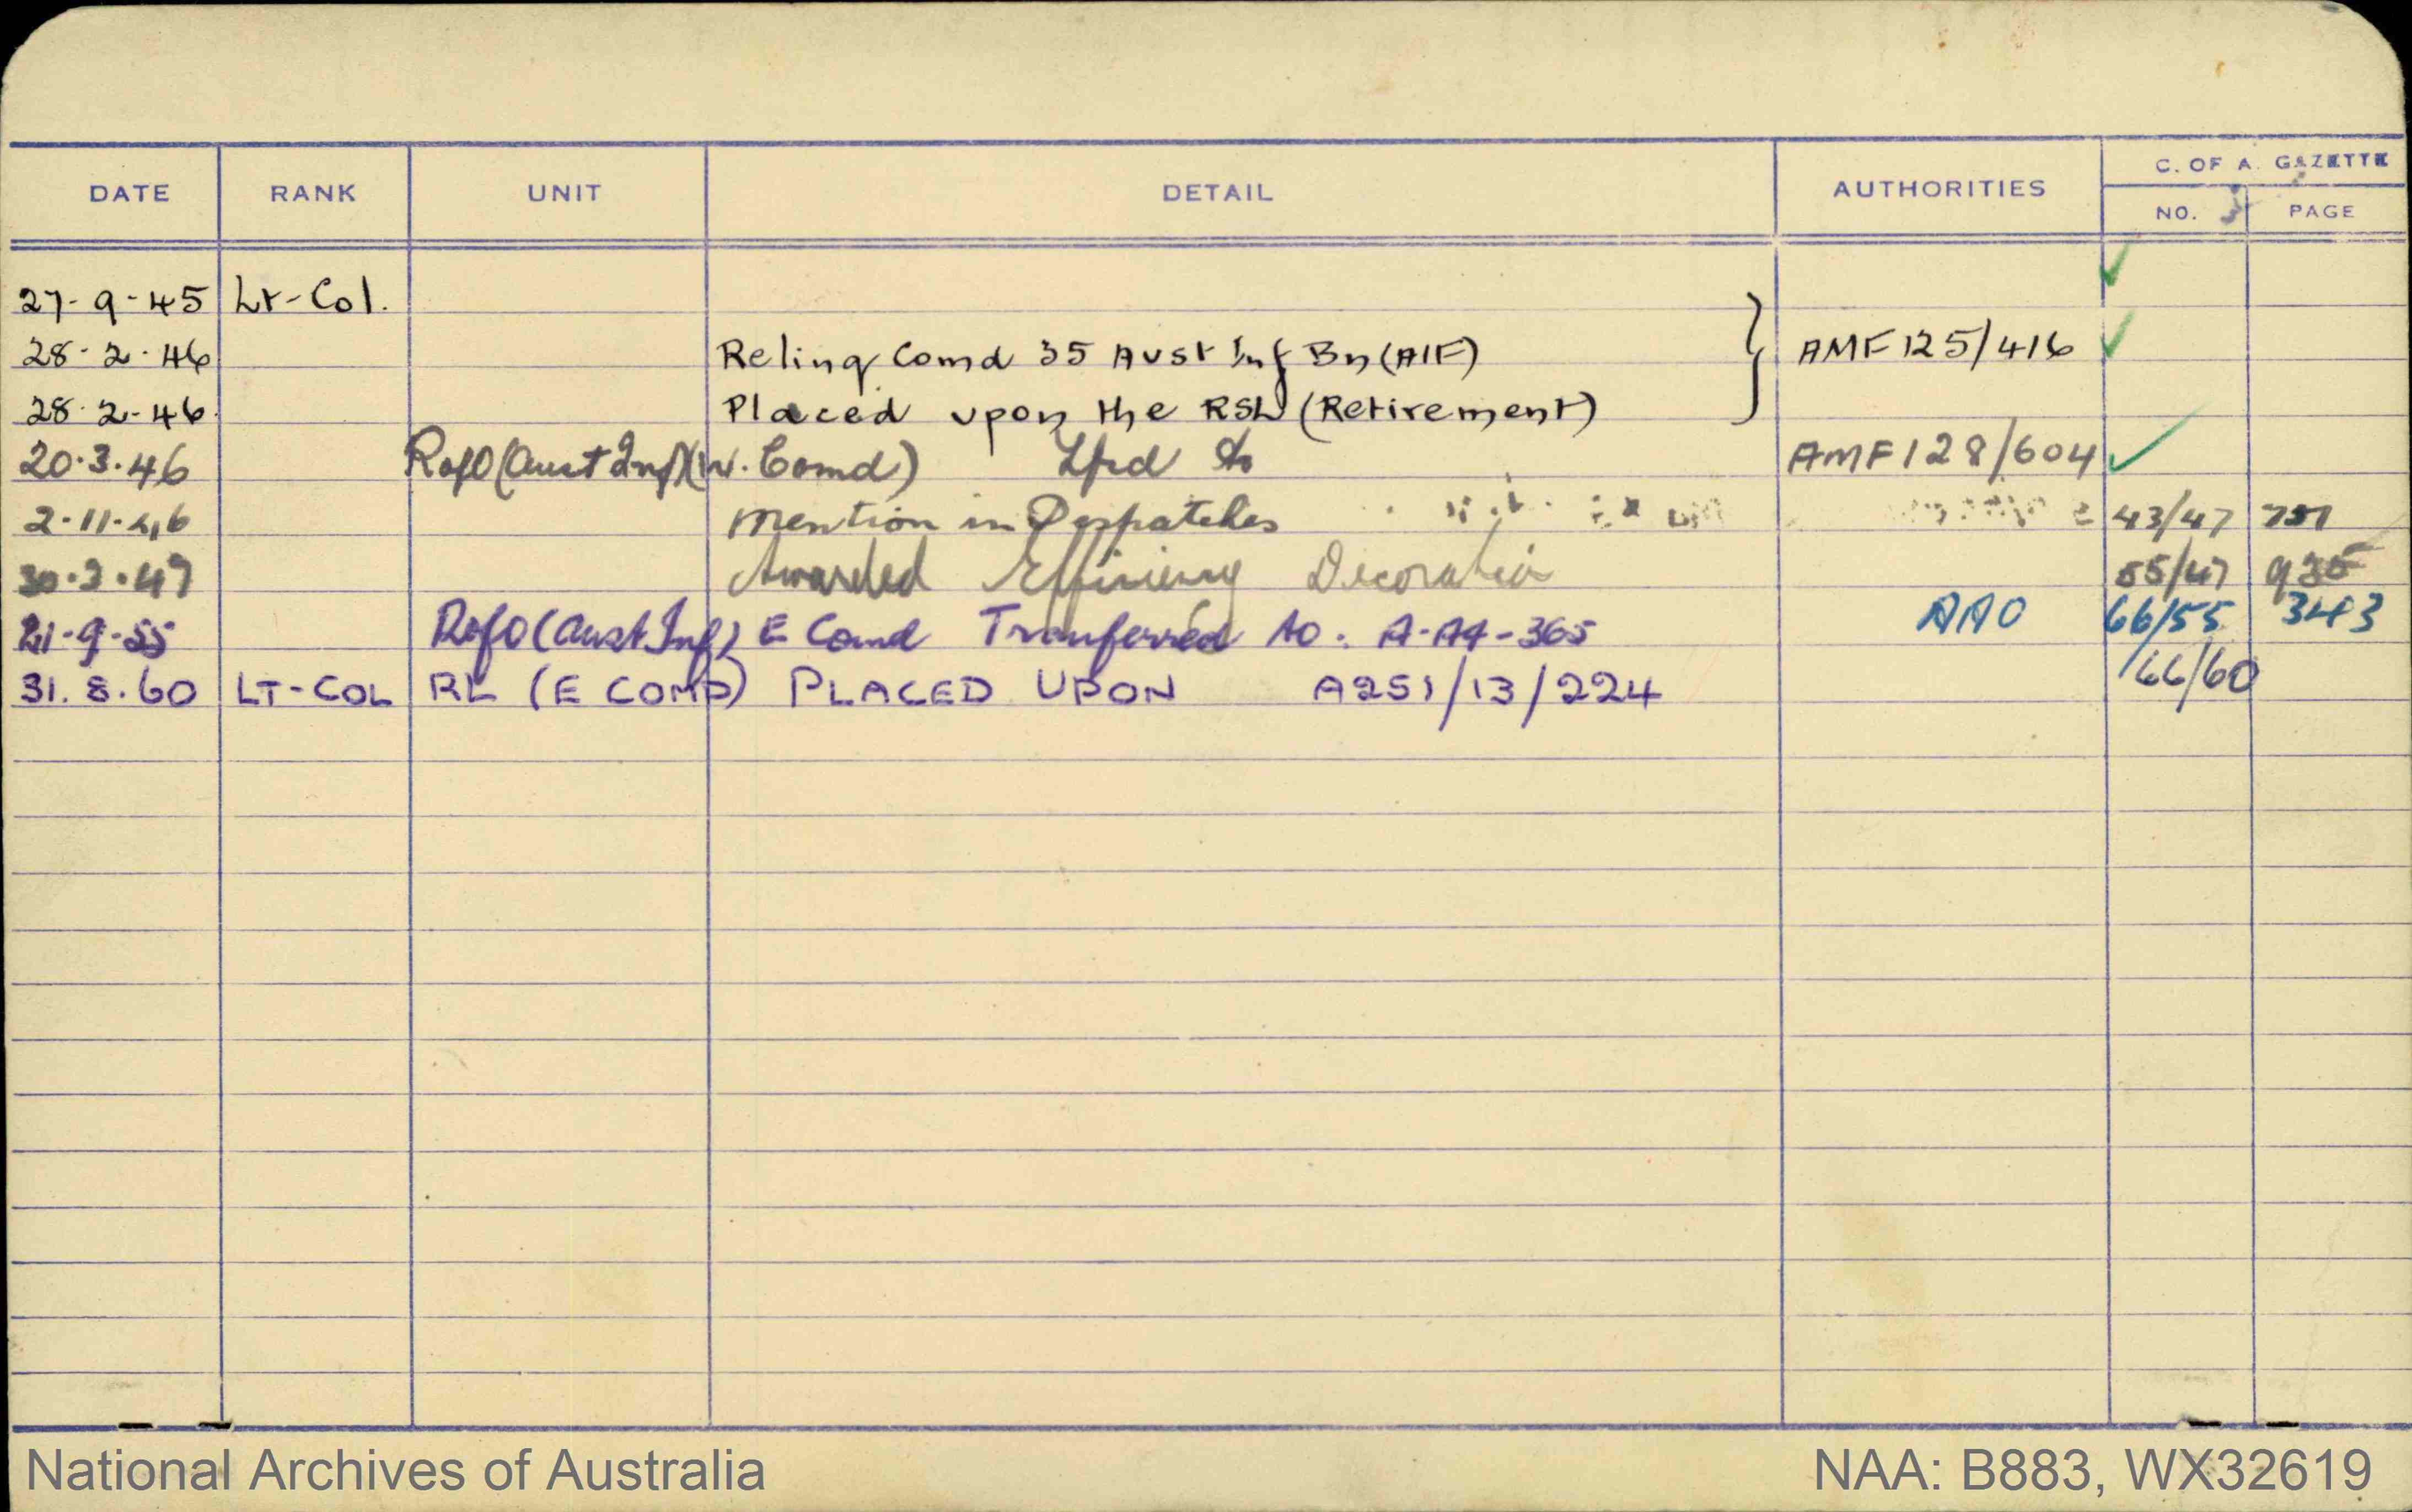 C. OF A. GAZETTE
DATE RANK UNIT DETAIL AUTHORITIES NO. PAGE
27-9-45 Lt-Col.
28-2-46 Relinq Comd 35 Aust Inf Bn (AIF) } AMF 125/416 ✓
28-2-46 Placed upon the RSL (Retirement)
20.3.46 RofO (Aust Inf) (W. Comd) Tfd to AMF 128/604 ✓
2.11.46 Mention in Despatches 43/47
Awarded Efficiency Decoration 55/47
21-9-55 RofO (Aust Inf) E Comd Transferred to: A-A4-365 AAO 66/55 3483
31.8.60 LT-COL RL (E COMD) PLACED UPON A251/13/224 66/60
National Archives of Australia NAA: B883, WX32619